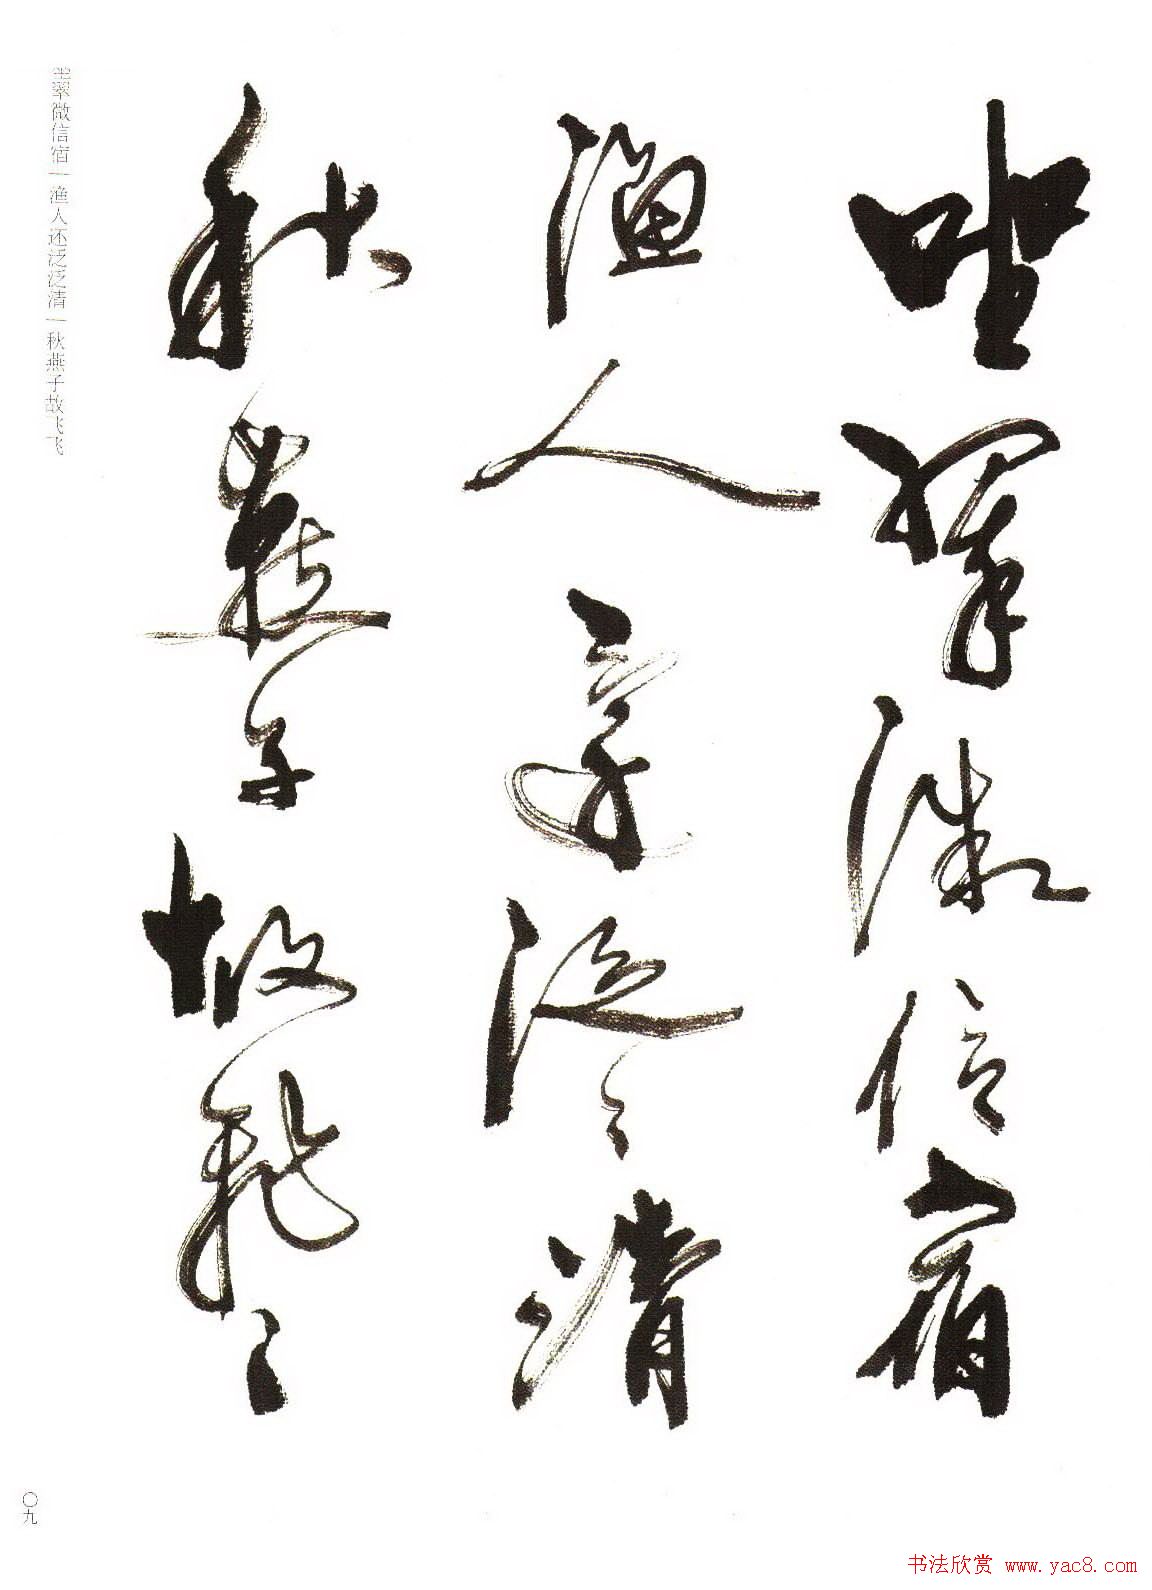 坐翠微信宿
漁人還泛〻清
秋燕子故飛〻
坐翠微信宿｜渔人还泛泛清｜秋燕子故飞飞
〇九
书法欣赏 www.yac8.com